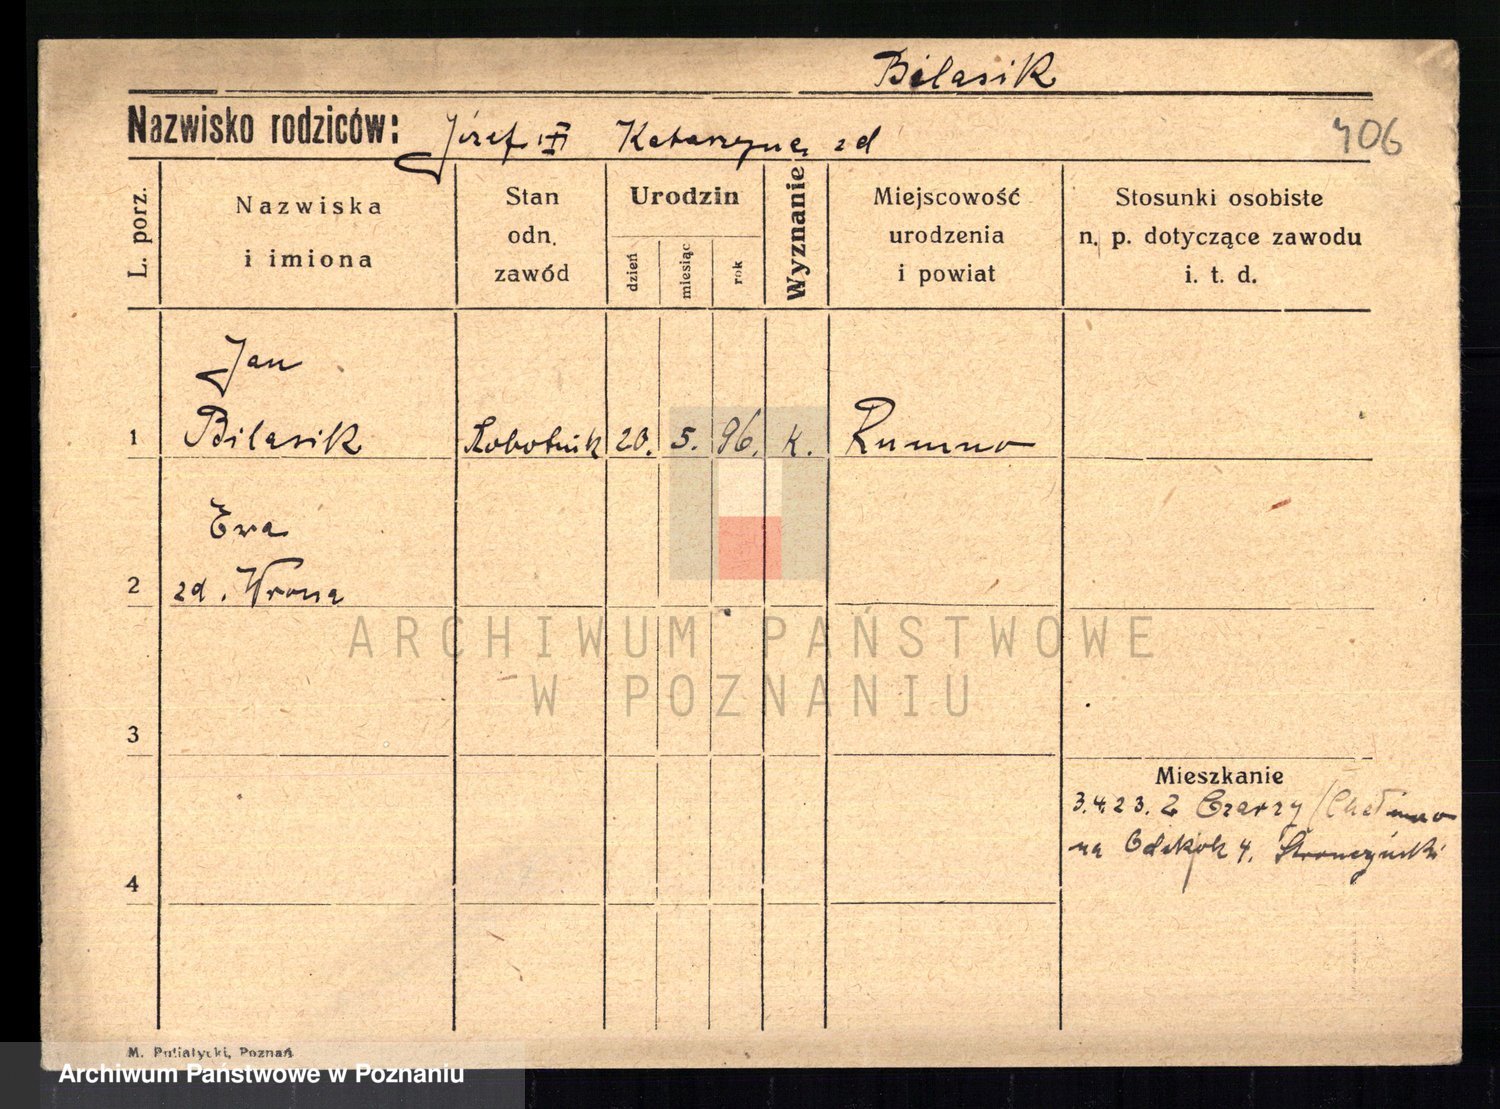 Bilasik
Nazwisko rodziców: Józef Katarzyna zd
406
L. porz.
Nazwiska
i imiona
Stan
odn.
zawód
Urodzin
dzień
miesiąc
rok
Wyznanie
Miejscowość
urodzenia
i powiat
Stosunki osobiste
n. p. dotyczące zawodu
i. t. d.
Jan
1 Bilasik Robotnik 20. 5. 96. k. Rumno
Ewa
2 zd. Wrona
ARCHIWUM PAŃSTWOWE
W POZNANIU
3
Mieszkanie
3.4.23. Z Czarży / Chełmno
na 4. Stronczyński
4
M. Putiatycki, Poznań
Archiwum Państwowe w Poznaniu